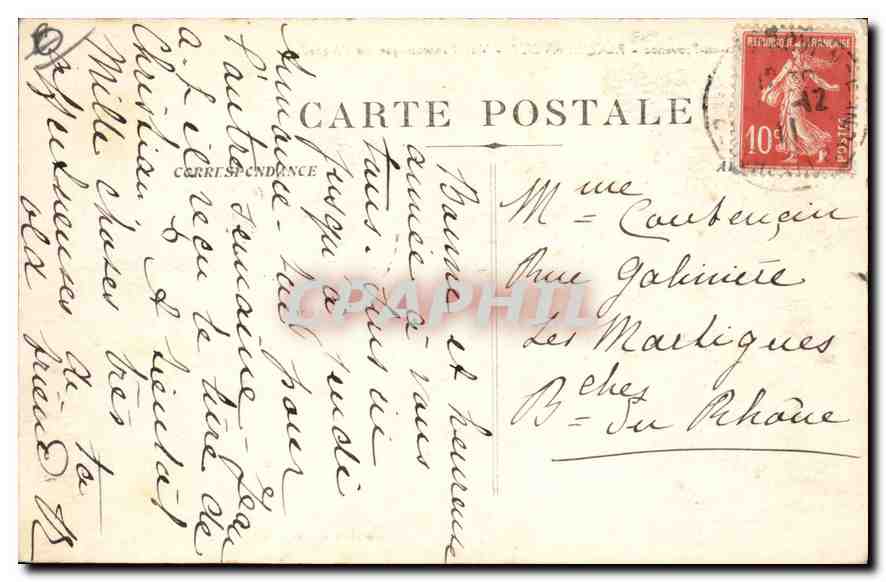 CARTE POSTALE
CORRESPONDANCE
REPUBLIQUE FRANÇAISE
10c
POSTES
Bonne et heureuse
année à vous
tous. Suis ici
jusqu'à jeudi
soir pour
l'autre semaine - Jean
a-t-il reçu le livre de
Christian? A bientôt
Mille choses très
affectueuses de ta
old friend
Mme Coutençin
Rue Galinière
Les Martigues
Bches du Rhône
CPAPHIL